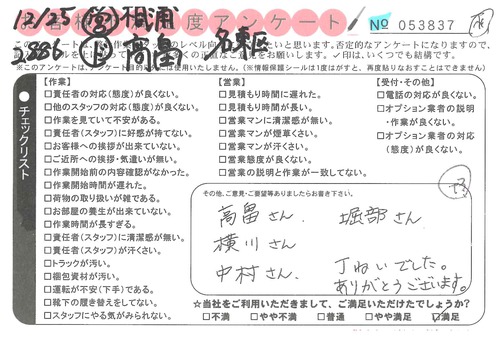 12/25
お客様満足度アンケート № 053837
高畠
※このアンケートは、アンケート目的以外には使用いたしません。(※情報保護シールは1度はがすと、再度貼りなおすことはできません)
チェックリスト
【作業】
□責任者の対応(態度)が良くない。
□他のスタッフの対応(態度)が良くない。
□作業を見ていて不安がある。
□責任者(スタッフ)に好感が持てない。
□お客様への挨拶が出来ていない。
□ご近所への挨拶・気遣いが無い。
□作業開始前の内容確認がなかった。
□作業開始時間が遅れた。
□荷物の取り扱いが雑である。
□お部屋の養生が出来ていない。
□作業時間が長すぎる。
□責任者(スタッフ)に清潔感が無い。
□責任者(スタッフ)が汗くさい。
□トラックが汚い。
□梱包資材が汚い。
□運転が不安(下手)である。
□靴下の履き替えをしてない。
□スタッフにやる気がみられない。
【営業】
□見積もり時間に遅れた。
□見積もり時間が長い。
□営業マンに清潔感が無い。
□営業マンが煙草くさい。
□営業マンが汗くさい。
□営業態度が良くない。
□営業の説明と作業が一致してない。
【受付・その他】
□電話の対応が良くない。
□オプション業者の説明
・作業が良くない。
□オプション業者の対応
(態度)が良くない。
その他、ご意見・ご要望等ありましたらお書き下さい。
高畠さん 堀部さん
横川さん
中村さん 丁ねいでした。
ありがとうございます。
☆当社をご利用いただきまして、ご満足いただけたでしょうか?
□不満 □やや不満 □普通 □やや満足 □満足